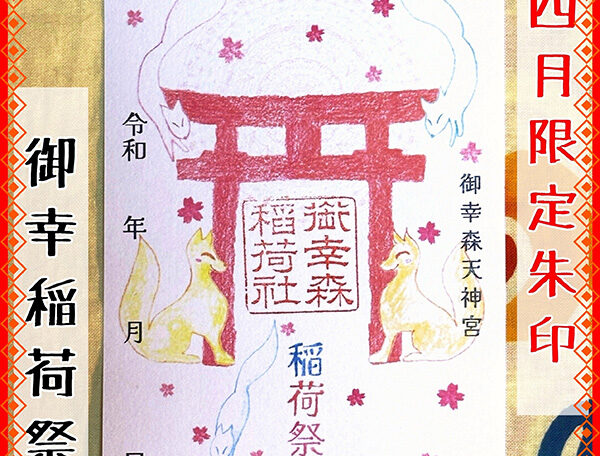 四月限定朱印
御幸森天神宮
御幸森
稲荷社
稲荷祭
令和 年 月 日
御幸稲荷祭